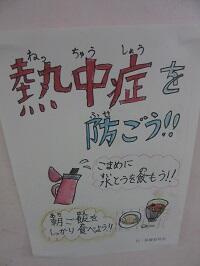 ねっ ちゅう しょう
熱中症を
ふせ
防ごう!!
こまめに
水とうを飲もう!!
あさ はん
朝ご飯を
しっかり食べよう!!